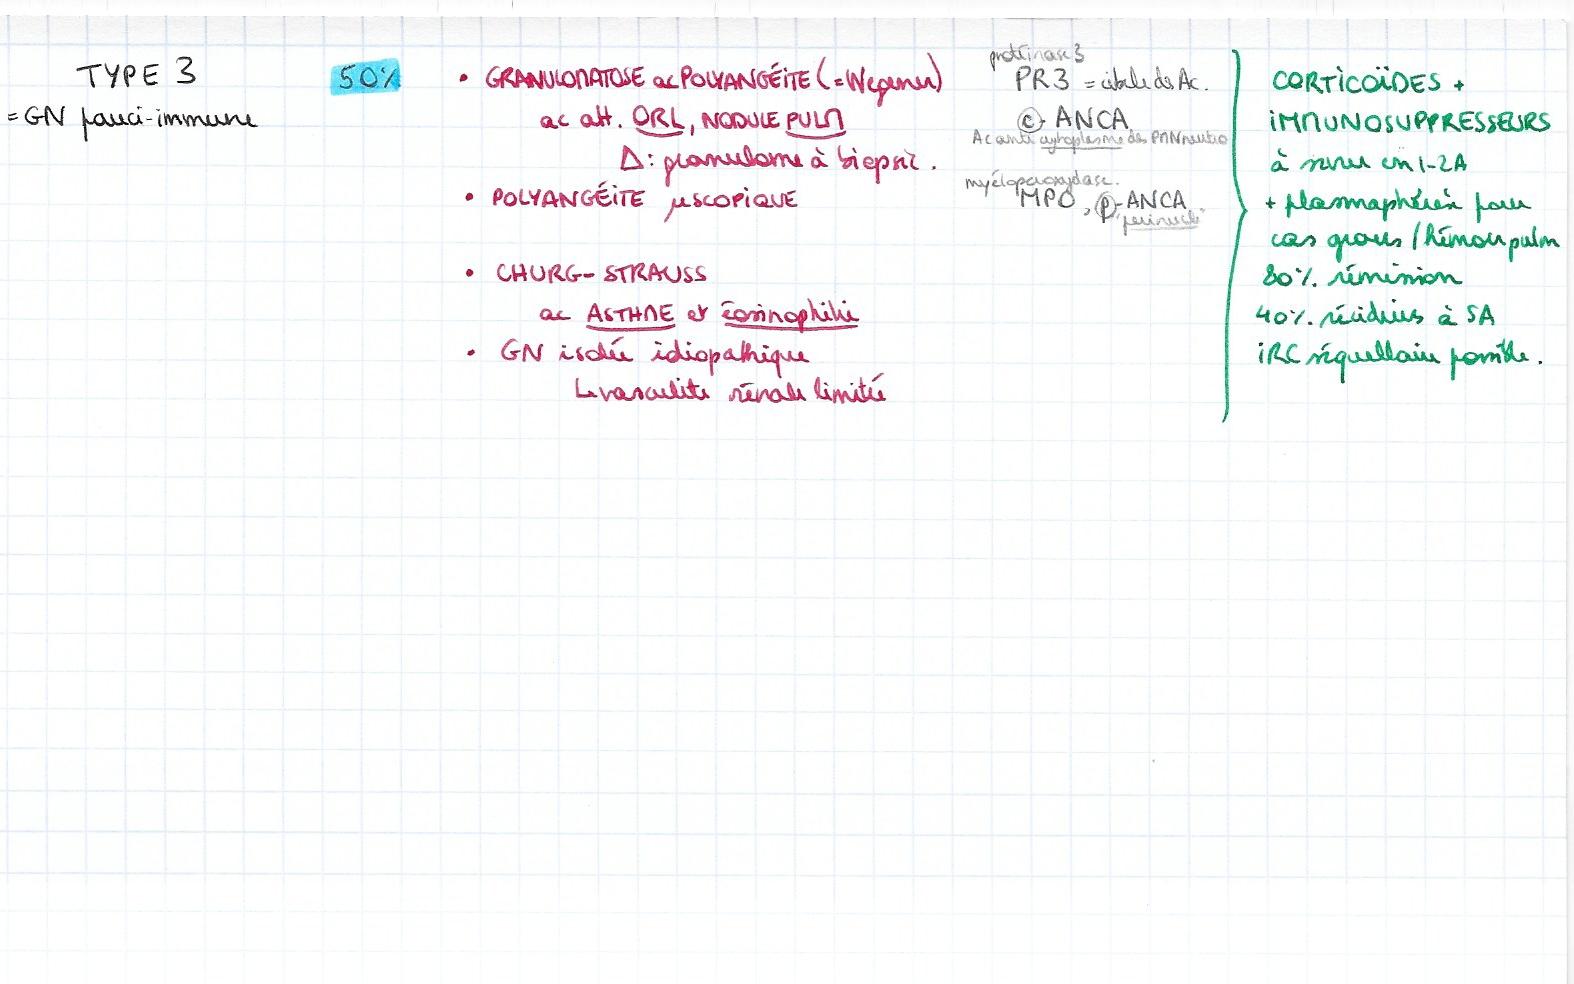 TYPE 3
= GN pauci-immune
50%
• GRANULOMATOSE ac POLYANGÉITE (= Wegener)
ac att. ORL, NODULE PULM
Δ: granulome à biopsie.
• POLYANGÉITE µscopique
• CHURG-STRAUSS
ac ASTHME et éosinophilie
• GN isolée idiopathique
↳ vasculite rénale limitée
protéinase 3
PR3 = cible des Ac.
c-ANCA
Ac anti cytoplasme des PNN neutro
myéloperoxydase.
MPO, p-ANCA
"périnuclé"
CORTICOÏDES +
IMMUNOSUPPRESSEURS
à sevrer en 1-2A
+ plasmaphérèse pour
cas graves / hémorr pulm
80% rémission
40% récidives à 5A
IRC séquellaire possible.